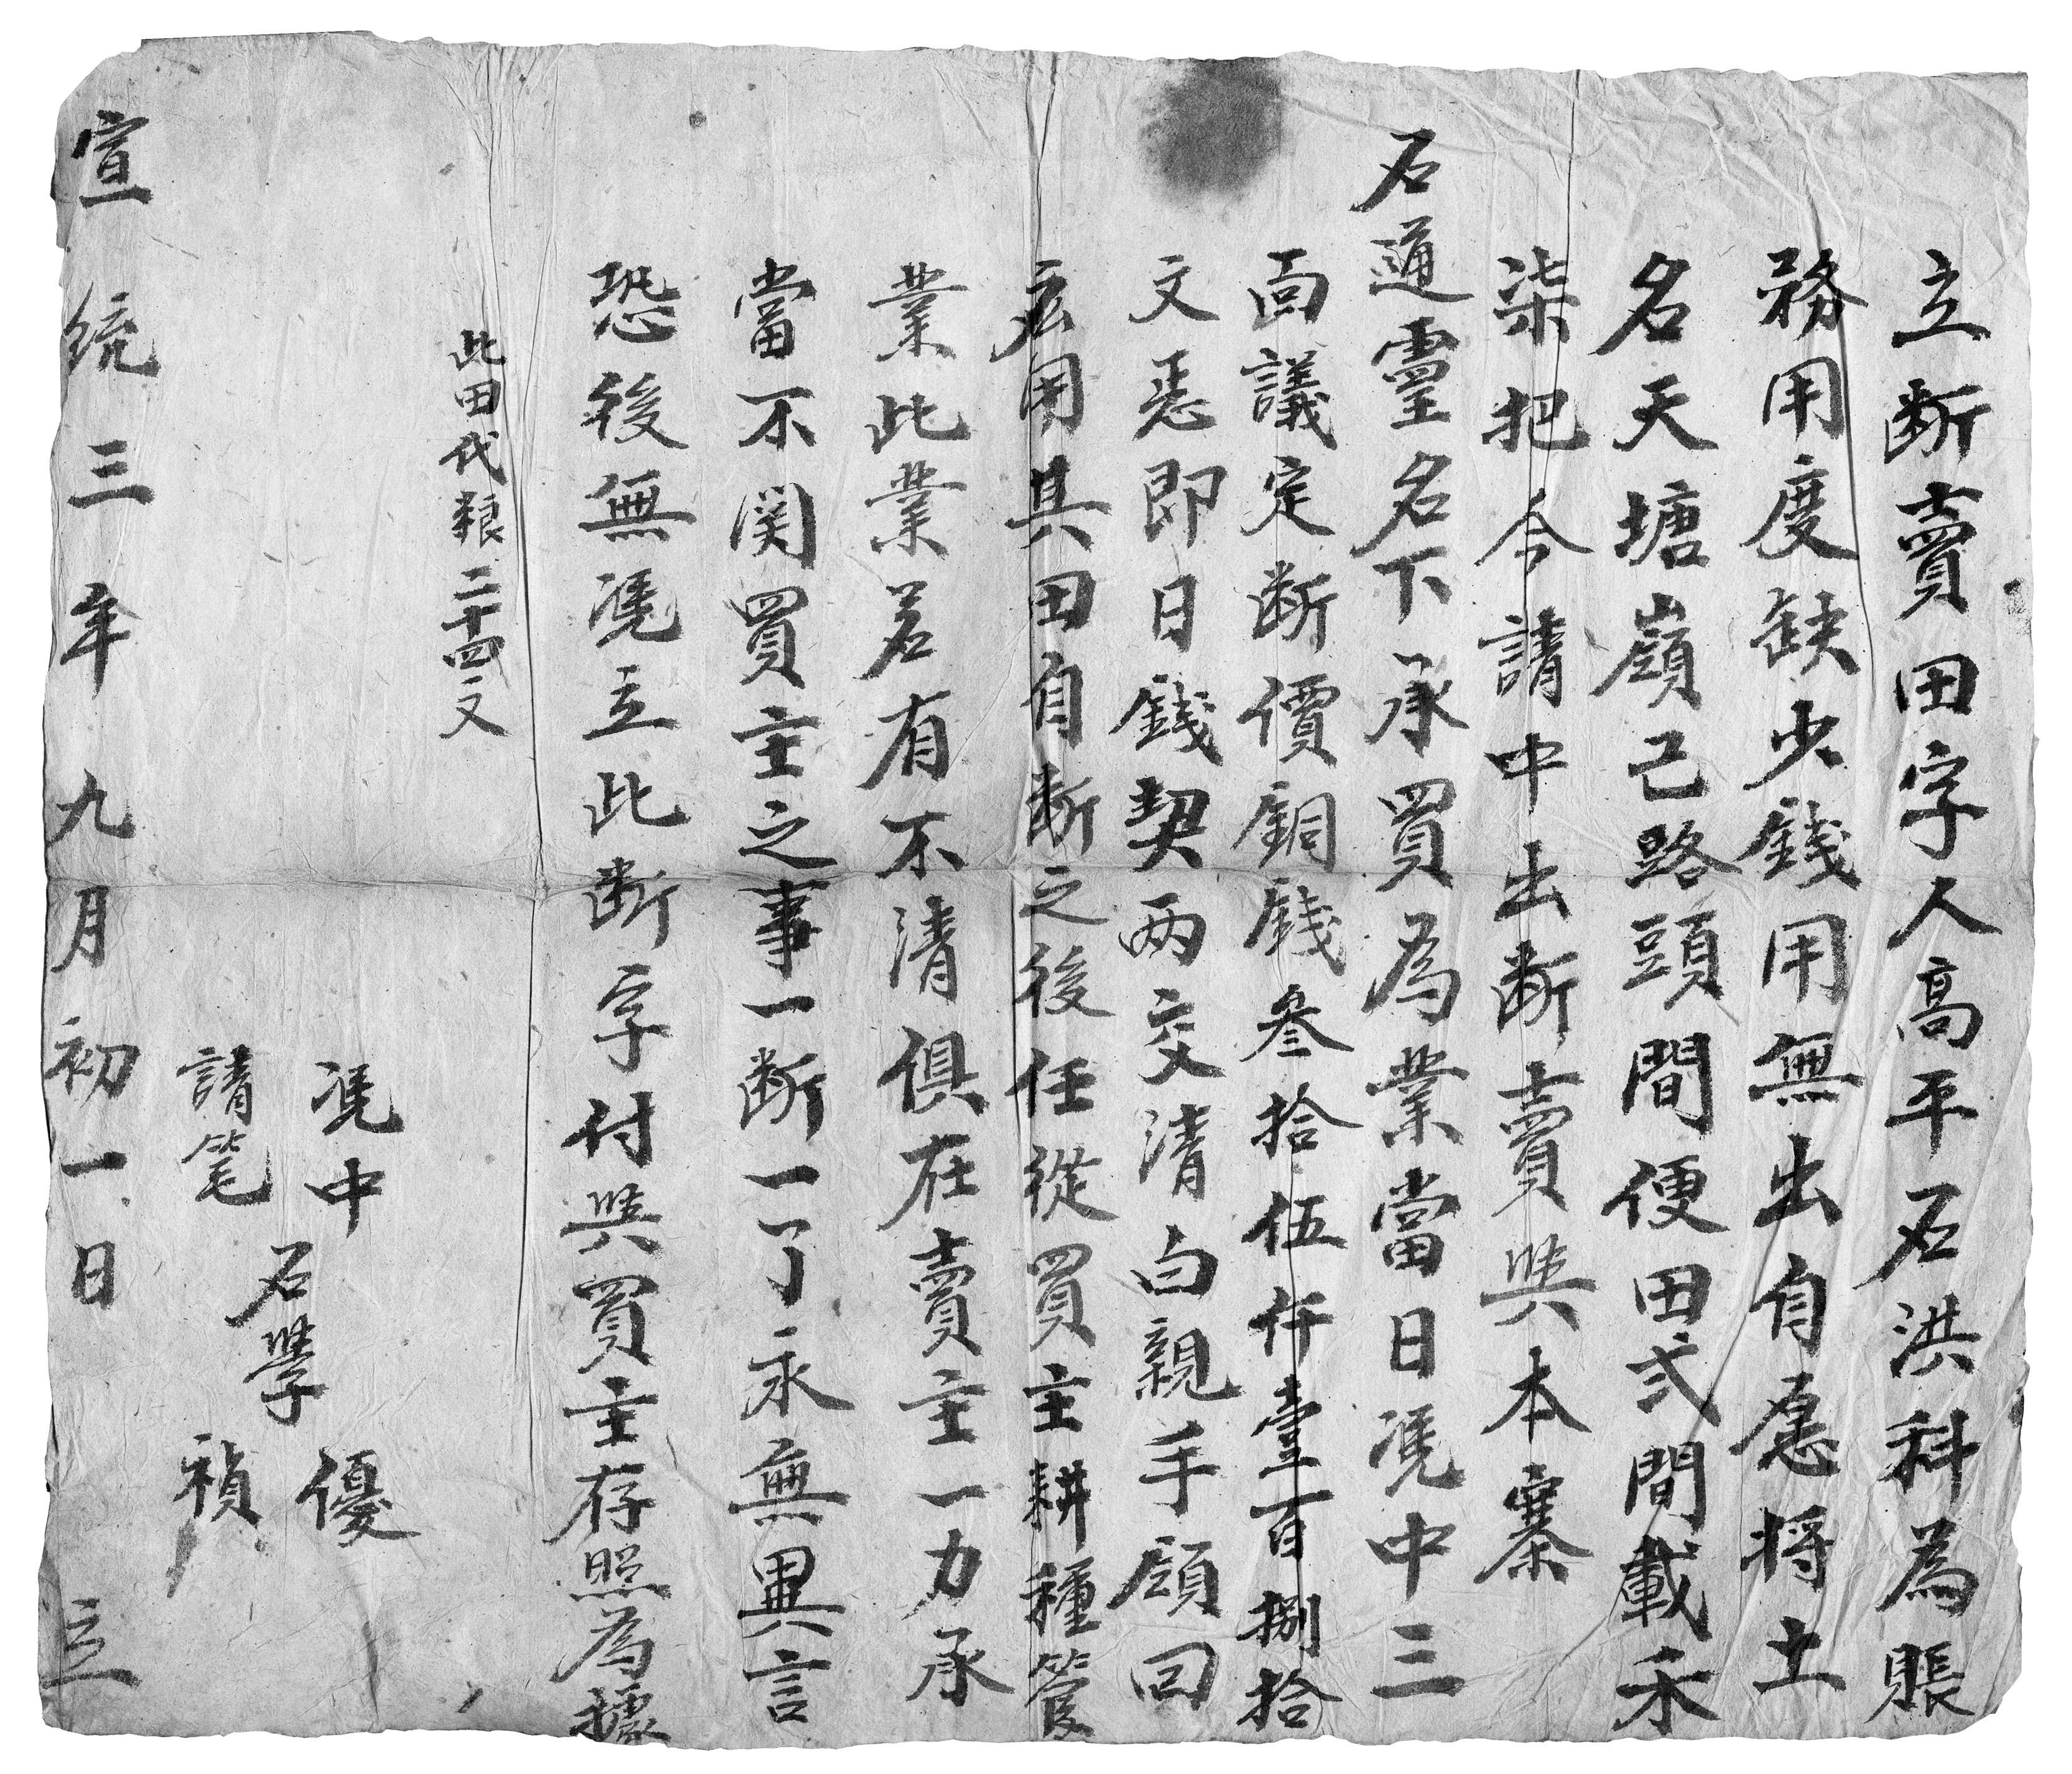 立断賣田字人高平石洪科為賬
務用度缺少錢用無出自愿将土
名天塘嶺己路頭間便田弍間載禾
柒把今請中出断賣與本寨
石通靈名下承買為業當日凴中三
面議定断價銅錢叁拾伍仟壹百捌拾
文悉即日錢契两交清白親手領回
應用其田自断之後任從買主耕種管
業此業若有不清俱在賣主一力承
當不関買主之事一断一了永無異言
恐後無凴立此断字付與買主存照為據
此田代粮二十四文
凴中 優
石學
請笔 禎
宣統三年九月初一日 立